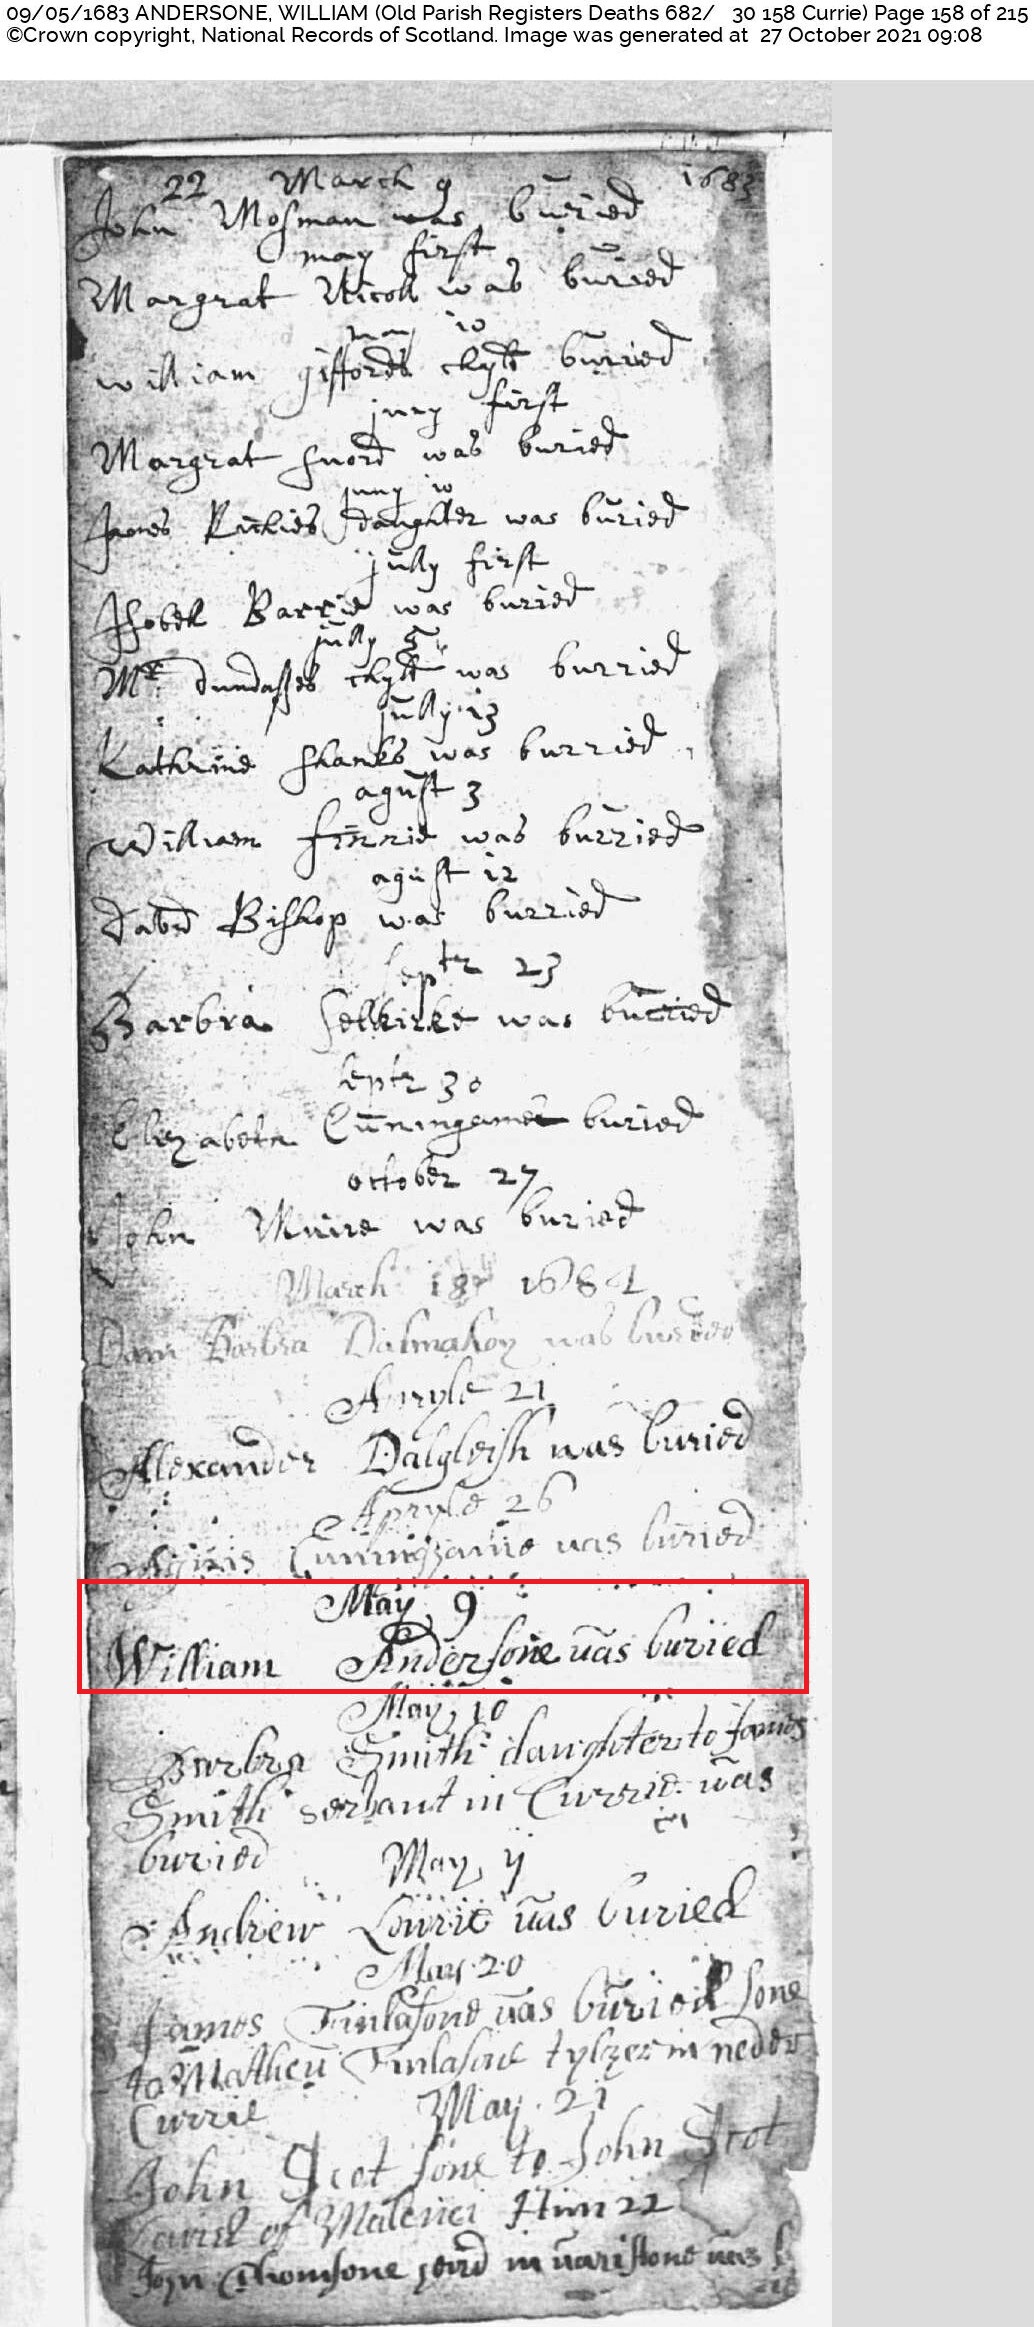 09/05/1683 ANDERSONE, WILLIAM (Old Parish Registers Deaths 682/ 30 158 Currie) Page 158 of 215
©Crown copyright, National Records of Scotland. Image was generated at 27 October 2021 09:08
22 March 9 1683
John Mosman was buried
may first
Margrat Nicoll was buried
may 10
william giffords chyld buried
juny first
Margrat suord was buried
juny 10
James Richies daughter was buried
jully first
Jsobell Barrie was buried
jully 5
Mr dundasses chyld was burried
jully 13
Kathrine shanks was burried
agust 3
William finnie was burried
agust 12
David Bishop was burried
septr 23
Barbra Selkirke was burried
septr 30
Elezabeth Cuningame buried
october 27
John Muire was buried
March 18 1684
Dam Barbra Dalmahoy was buried
Apryle 21
Alexander Dalgleish was buried
Apryle 26
Cunninghame was buried
May 9
William Andersone was buried
May 10
Barbra Smith daughter to James
Smith servant in Currie was
buried May 11
Andrew Lowrie was buried
May 20
James Finlasone was buried sone
to Matheu Finlasone in neder
Currie May 21
John Scot sone to John Scot
of 22
Thomsone in was